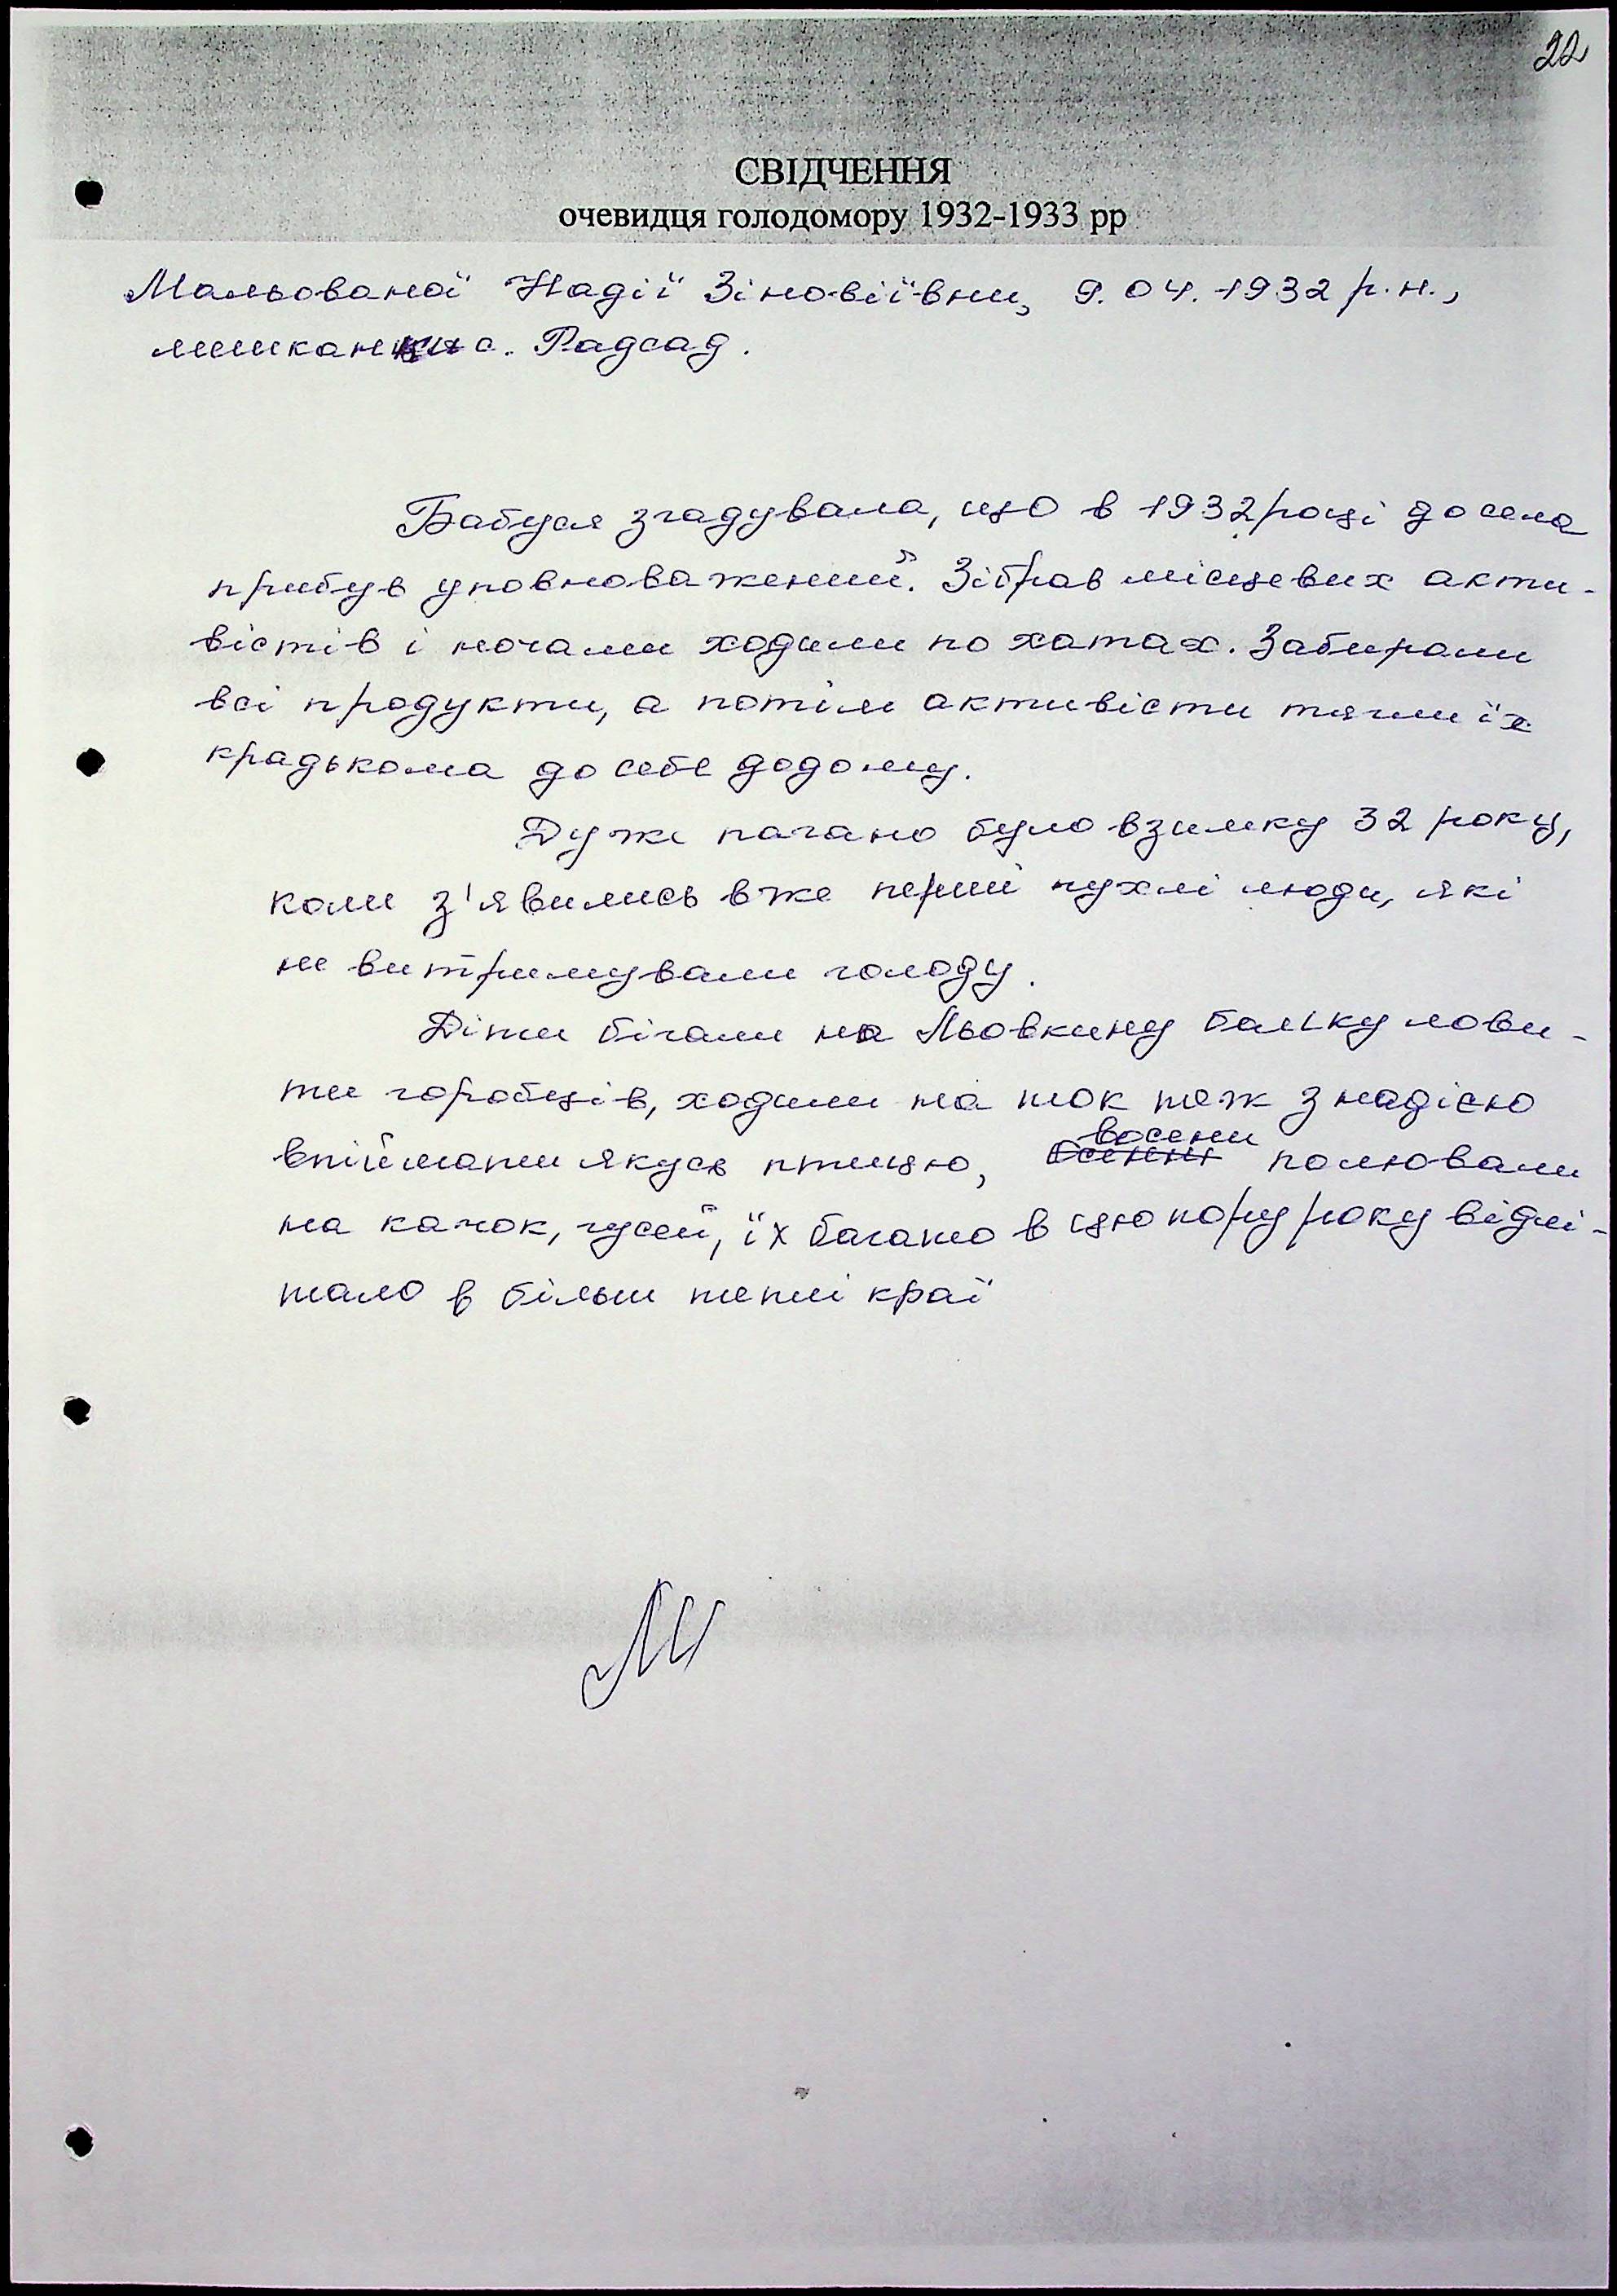 22
СВІДЧЕННЯ
очевидця голодомору 1932-1933 рр
Мальованої Надії Зіновіївни, 9.04.1932 р.н.,
мешканки с. Радсад.
Бабуся згадувала, що в 1932 році до села
прибув уповноважений. Зібрав місцевих акти-
вістів і ночами ходили по хатах. Забирали
всі продукти, а потім активісти тягли їх
крадькома до себе додому.
Дуже погано було взимку 32 року,
коли з'явились вже перші пухлі люди, які
не витримували голоду.
Діти бігали на Льовкину балку лови-
ти горобців, ходили на ток теж з надією
восени
впіймати якусь птицю, полювали
на качок, гусей, їх багато в цю пору року відлі-
тало в більш теплі краї